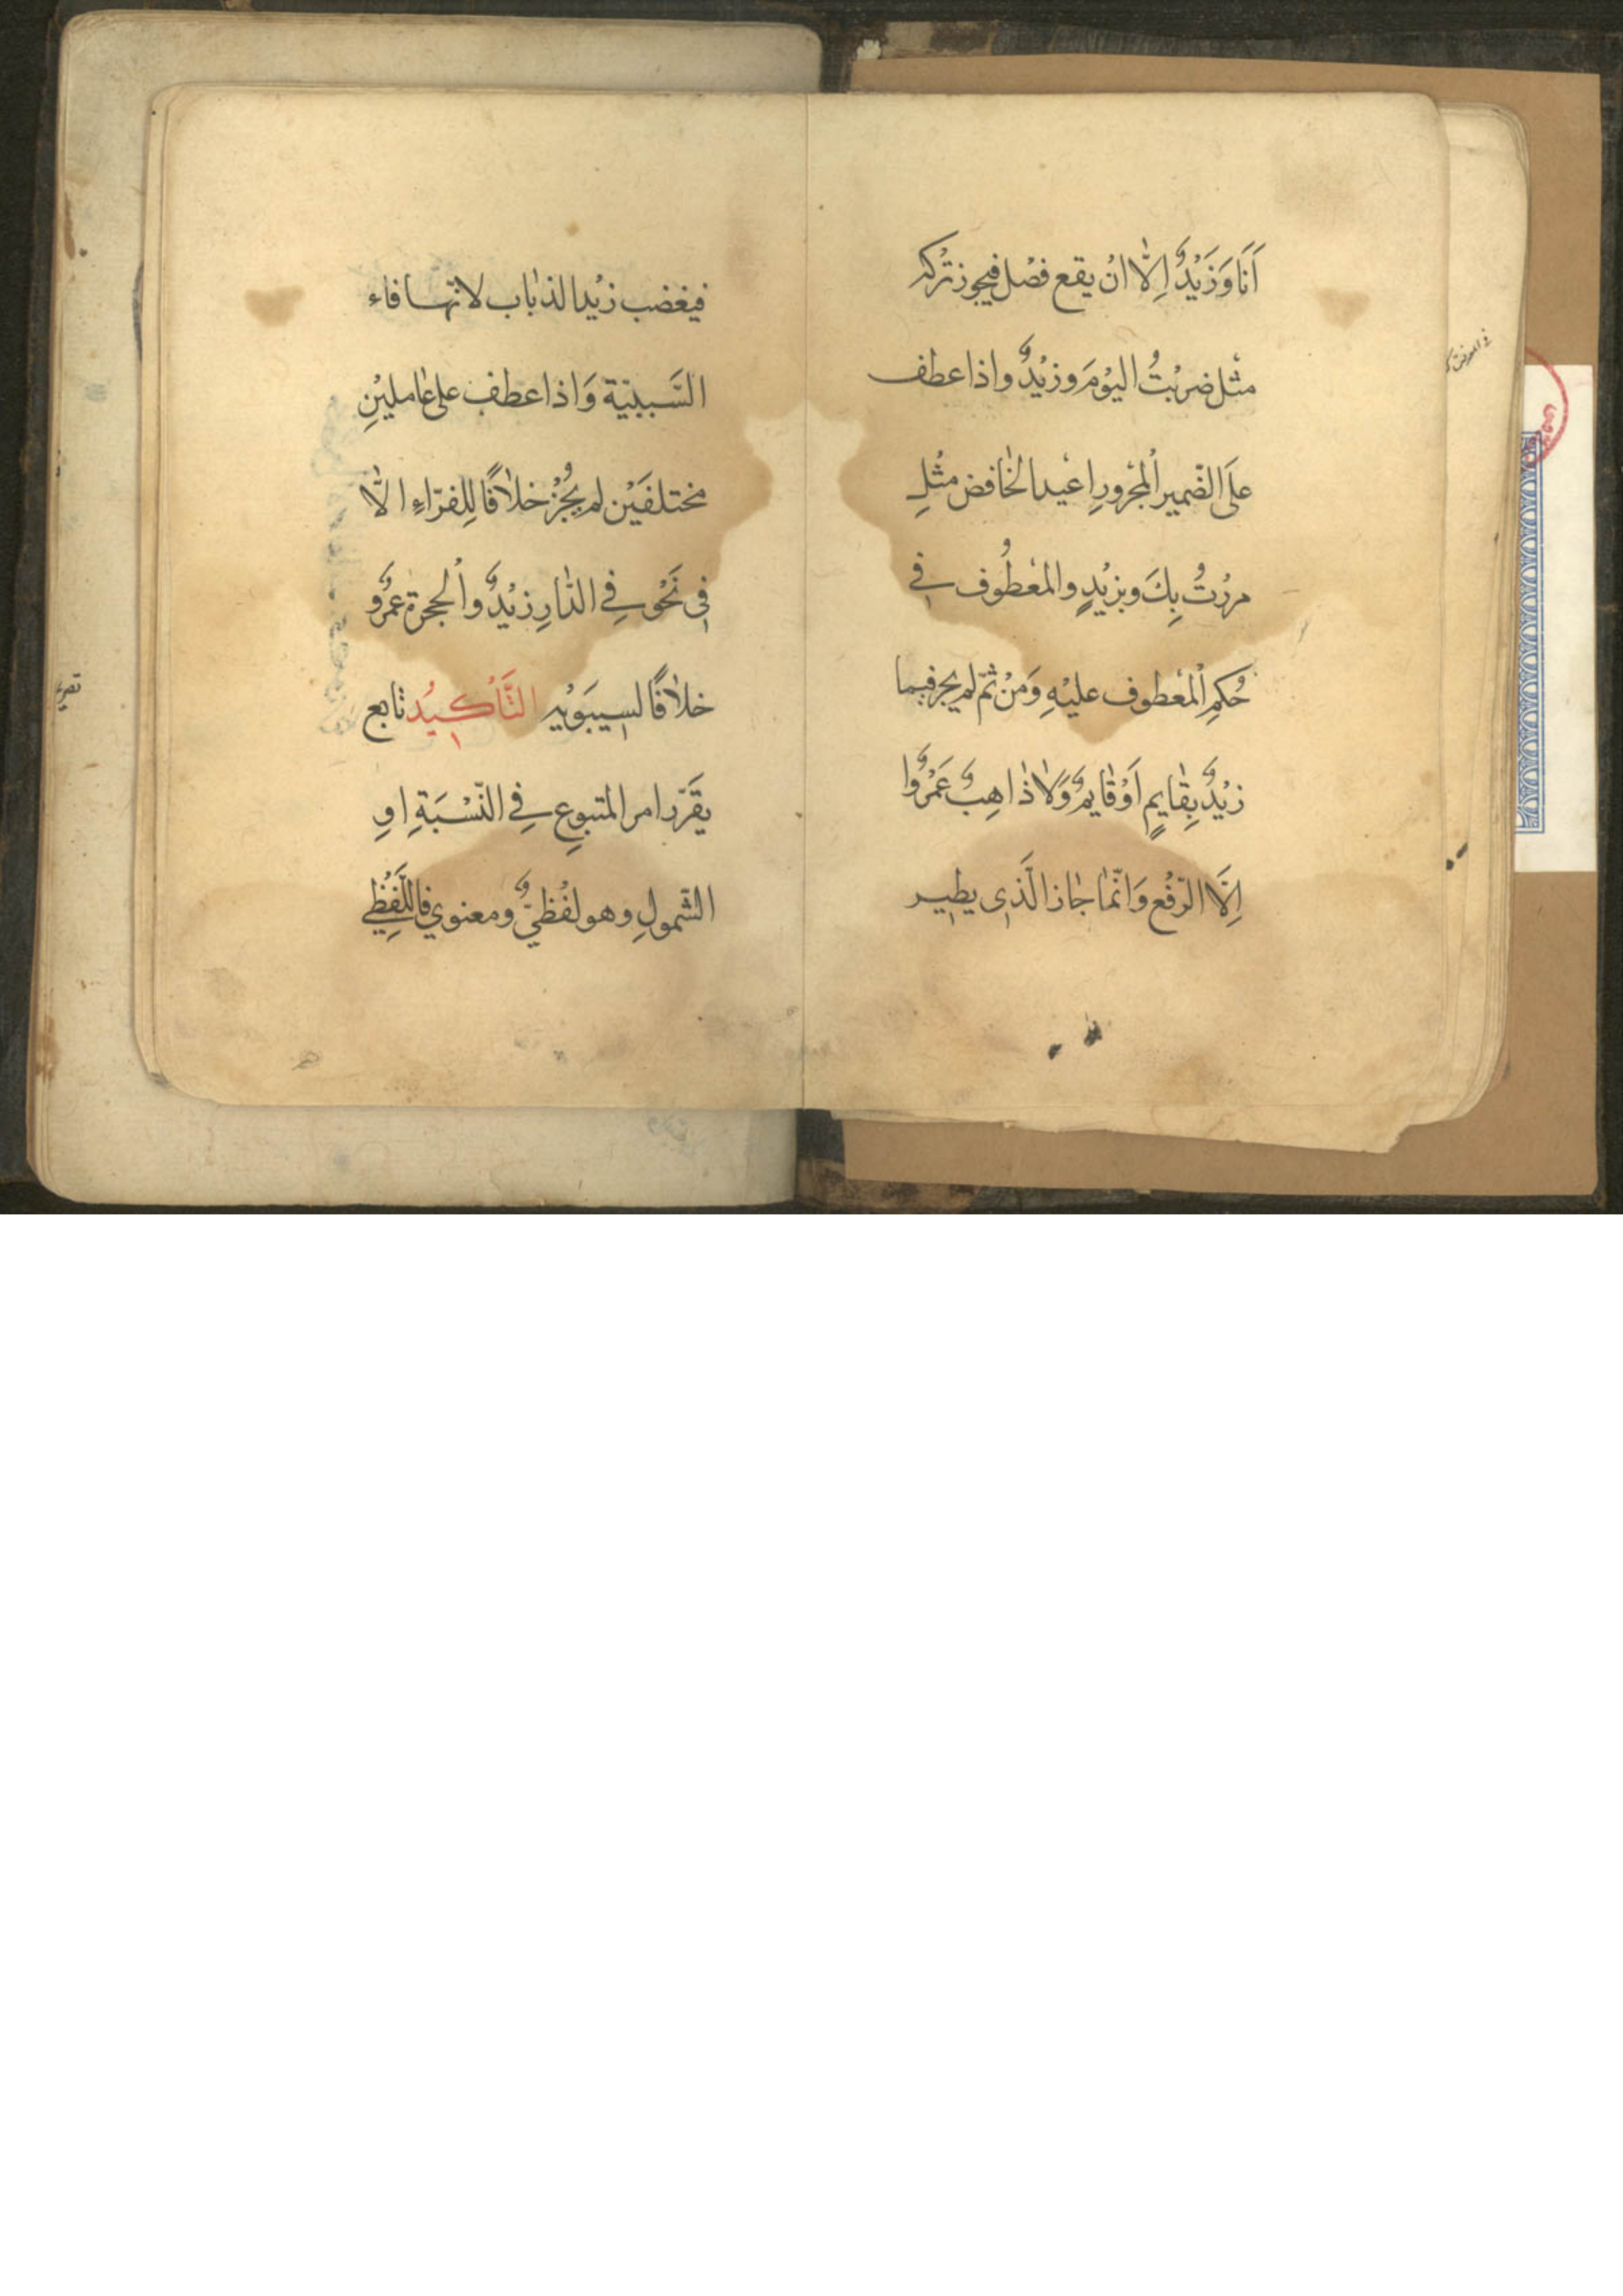 اَنَا وَزَيْدٌ اِلَّا انْ يقع فصْل فيجوز تَرْكه
مثْل ضربْتُ اليوْمَ وزيْدٌ واذا عطف
علَى الضّمير اْلمجْرورِ اعْيد الخَافض مثْلِ
مررْتُ بِكَ وبزيْدٍ والمعْطُوف في
حُكمِ اْلمعْطوف عليْهِ وَمنْ ثمّ لم يجز فيما
زيْدٌ بِقَايمٍ اَوْ قَايمٌ وَلَا ذَاهِبٌ عَمْرٌوا
اِلَّا الرّفْع وَانّمَا جَاز الّذى يطير
فيغضب زيْد الذبَاب لانّها فاء
السَّببيّة وَاذا عطف على عَامليْنِ
مختلفَيْن لم يجُزْ خلَافًا لِلفرّاءِ الَّا
فى نَحْو في الدَّارِ زيْدٌ واْلحجرة عمْرٌو
خلَافًا لسيبَوَيْه التَّأْكيدُ تَابع
يقَرّر امر المتبوعِ في النّسْبَةِ اوِ
الشّمولِ وهو لفْظيٌّ ومعنوي فاللّفْظي